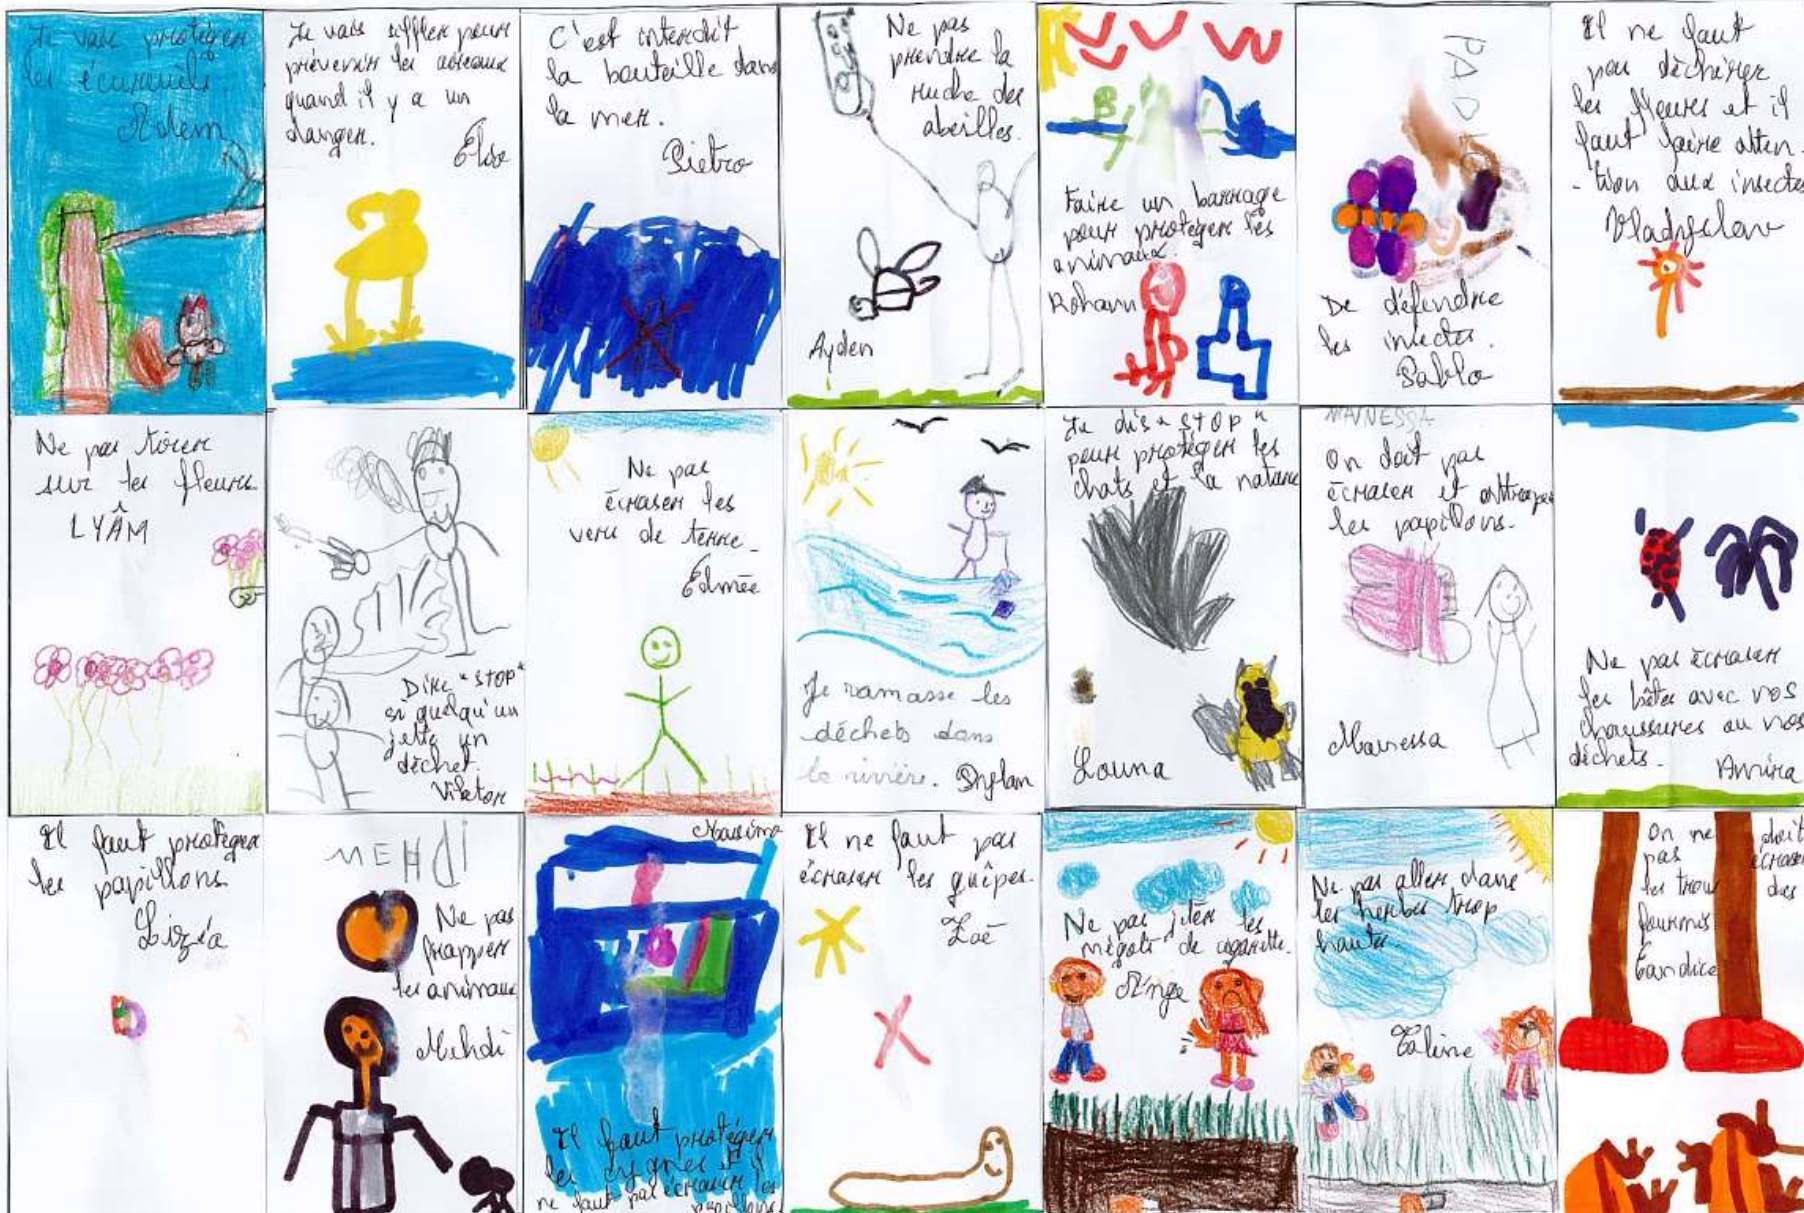 Je vais protéger
les écureuils.
Adem
Je vais siffler pour
prévenir les oiseaux
quand il y a un
danger.
C'est interdit
la bouteille dans
la mer.
Pietro
Ne pas
prendre la
ruche des
abeilles.
Ayden
Faire un barrage
pour protéger les
animaux.
Rohann
PABLO
De défendre
les insectes.
Pablo
Il ne faut
pas déchirer
les fleurs et il
faut faire atten-
-tion aux insectes
Vladyslav
Ne pas tirer
sur les fleurs
LYÂM
Dire "STOP"
si quelqu'un
jette un
déchet.
Viktor
Ne pas
écraser les
vers de terre.
Edmée
Je ramasse les
déchets dans
la rivière. Dylan
Je dis "STOP"
pour protéger les
chats et la nature
Louna
MAINESSA
On doit pas
écraser et attraper
les papillons.
Mainessa
Ne pas écraser
les bêtes avec vos
chaussures ou vos
déchets.
Amira
Il faut protéger
les papillons
MEHDI
Ne pas
frapper
les animaux
Mehdi
Il faut protéger
les cygnes et il
ne faut pas écraser les
papillons
Il ne faut pas
écraser les guêpes.
Zoé
Ne pas jeter les
mégots de cigarette.
Ange
Ne pas aller dans
les herbes trop
hautes.
On ne doit
pas écraser
les trous des
fourmis
Candice